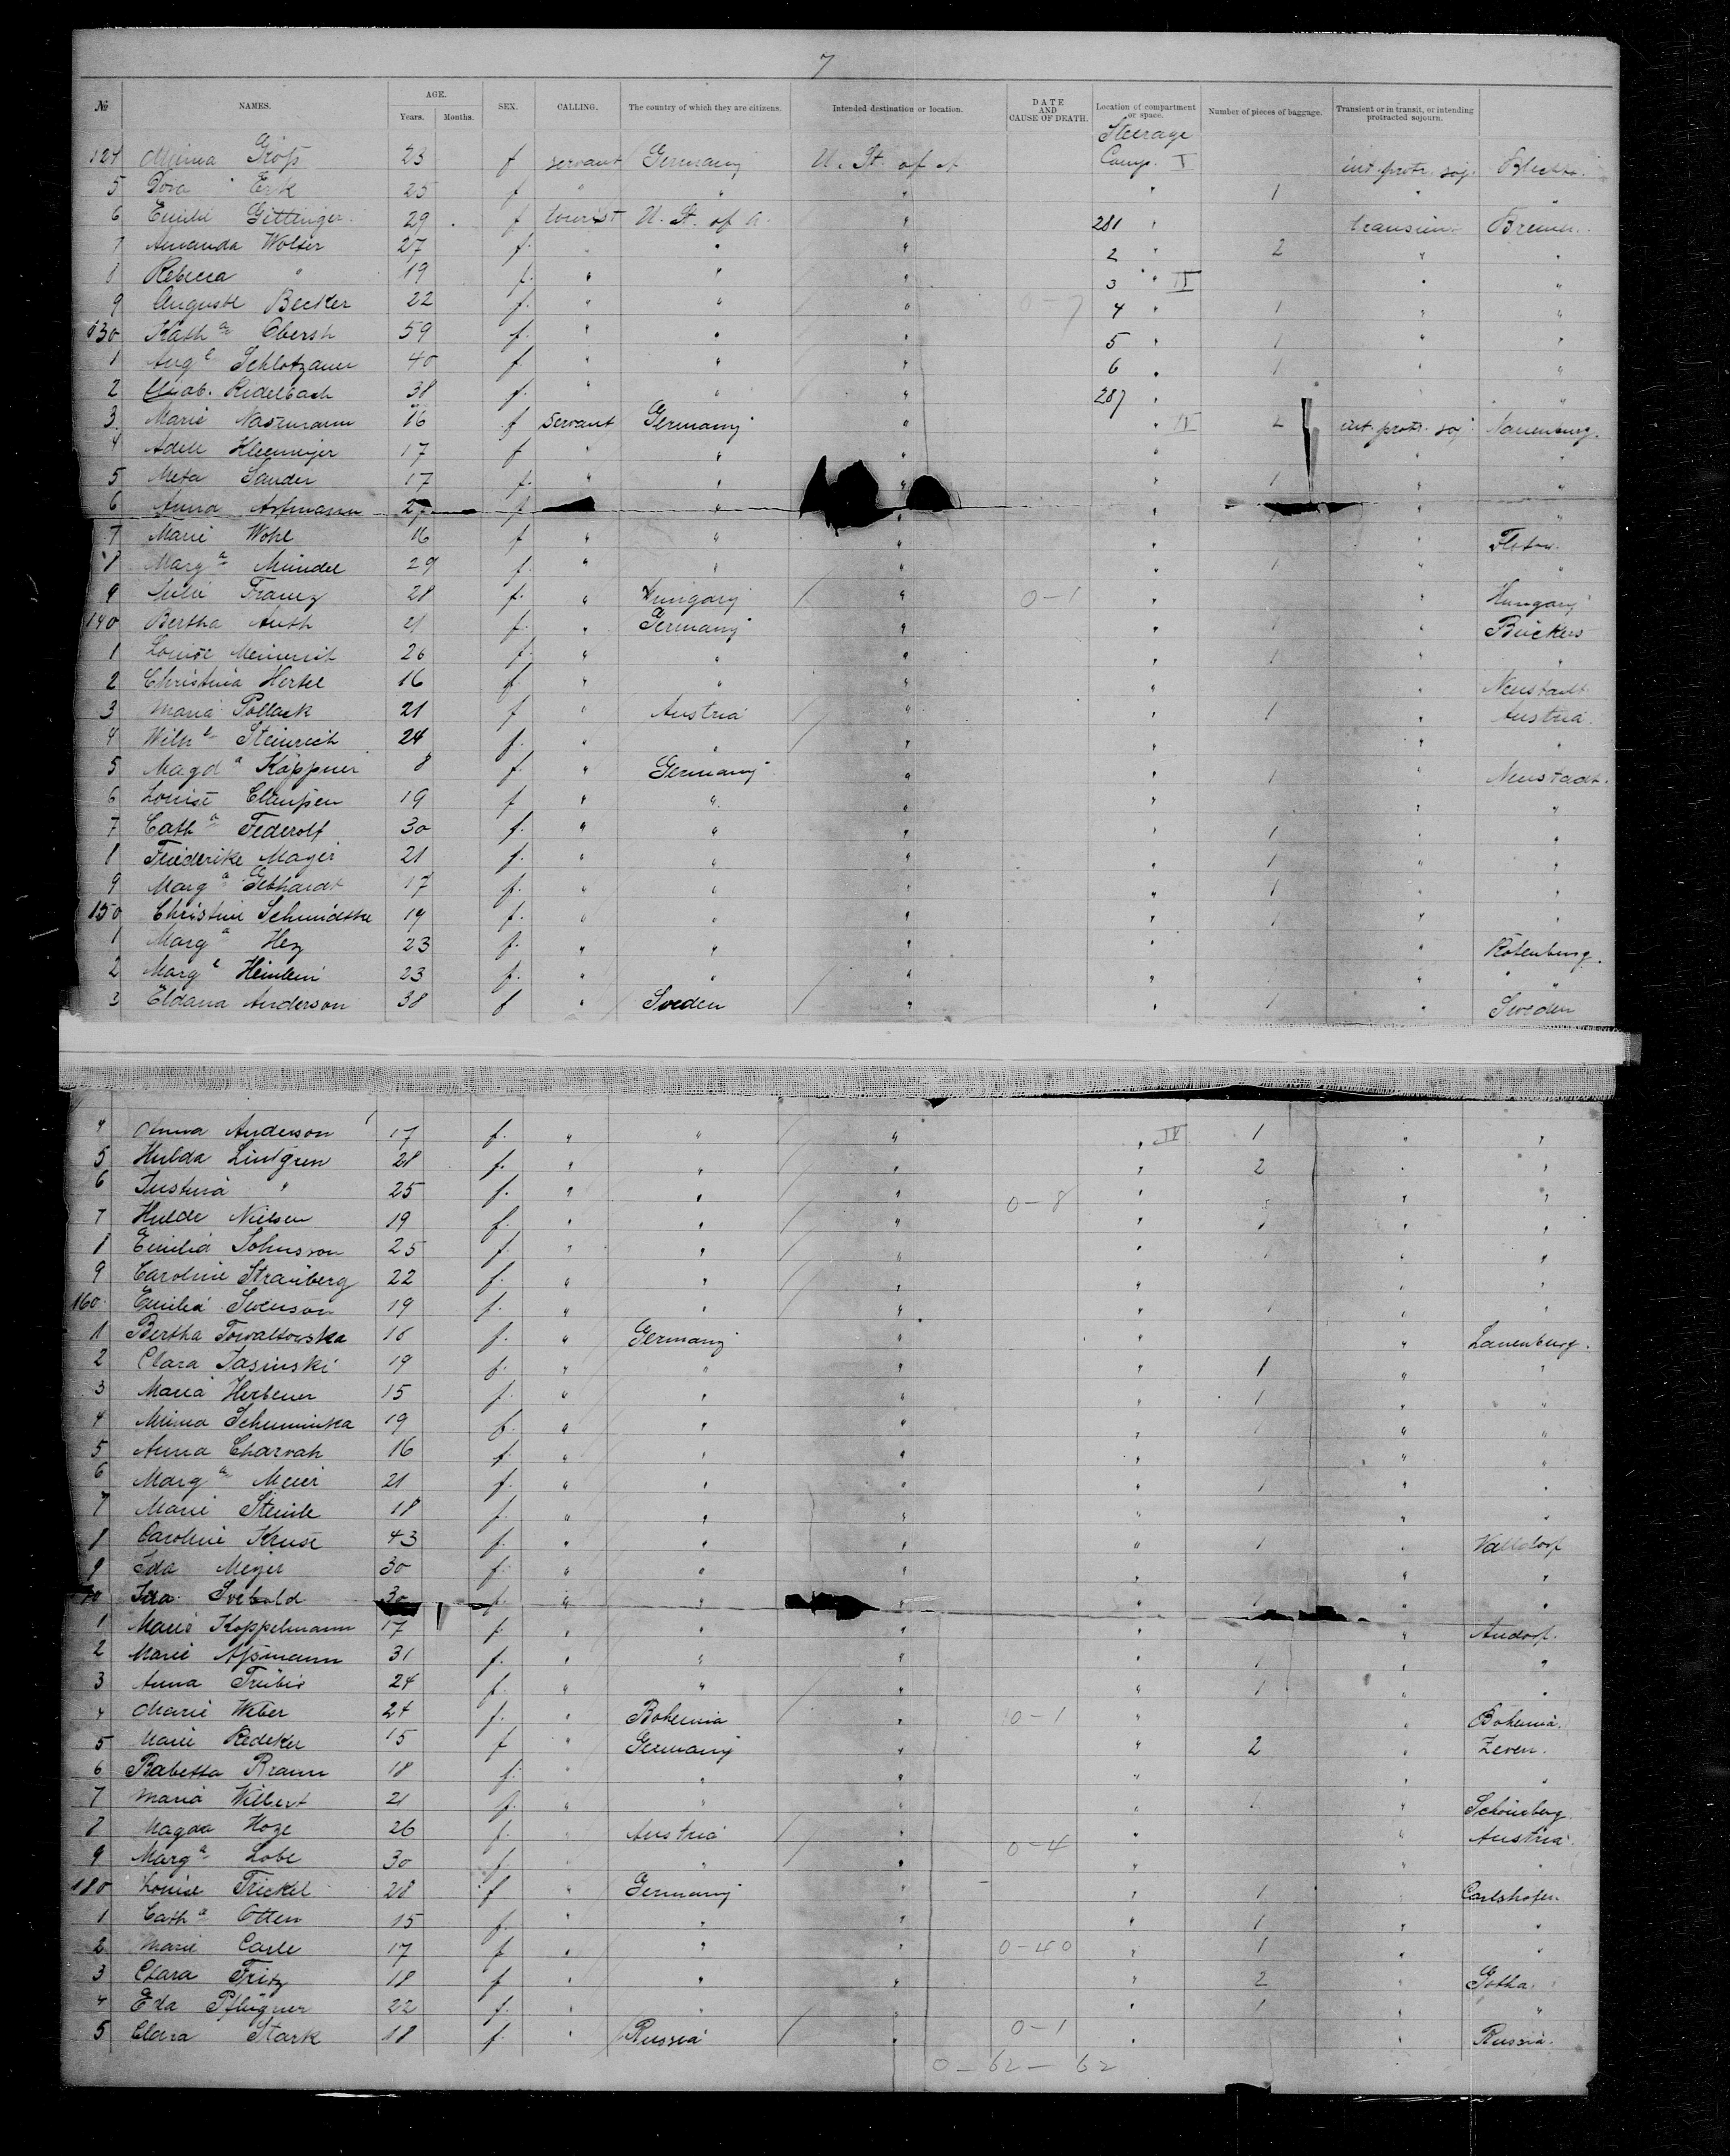 7
№ NAMES. AGE. Years. Months. SEX. CALLING. The country of which they are citizens. Intended destination or location. DATE AND CAUSE OF DEATH. Location of compartment or space. Number of pieces of baggage. Transient or in transit, or intending protracted sojourn.
Steerage
124 Minna Groß 23 f servant Germany U. St. of A Comp. I int. protr. soj.
5 Dora Erk 25 f " " " " 1 " "
6 Emilie Gittinger 29 f tourist U. St. of A. " 281 " transient Bremen.
7 Amanda Wolter 27 f. " " " 2 " 2 " "
8 Rebecca " 19 f. " " " 3 " II " "
9 Auguste Becker 22 f. " " " 4 " 1 " "
130 Kath a Obersh 59 f. " " " 5 " 1 " "
1 Aug e Schlotzauer 40 f. " " " 6 " 1 " "
2 Elisab. Ridelbach 38 f. " " " 287 " " "
3 Marie Nasemann 16 f servant Germany " " IV 2 int. protr. soj.
4 Adele Kleemeyer 17 f " " " " " "
5 Meta Sander 17 f. " " " " 1 " "
6 Anna 27 f " " " " "
7 Marie Wohl 16 f " " " " "
8 Marg a Mündel 29 f. " " " " 1 " "
9 Julie Franz 28 f. " Hungary " 0-1 " " Hungary
140 Bertha Auth 21 f. " Germany " " 1 " Bückers
1 Louise 26 f. " " " " 1 " "
2 Christina Hertel 16 f. " " " " " Neustadt
3 Maria Pollack 21 f " Austria " " 1 " Austria.
4 Wilh e Steinrich 24 f. " " " " " "
5 Magd a Köppner 8 f. " Germany " " 1 " Neustadt.
6 Louise Claußen 19 f " " " " " "
7 Cath a Federolf 30 f. " " " " 1 " "
8 Friederike Mayer 21 f. " " " " 1 " "
9 Marg a Gebhardt 17 f. " " " " 1 " "
150 Christine 19 f. " " " " 1 " "
1 Marg a Hey 23 f. " " " " " Rotenburg.
2 Marg e Heinlein 23 f. " " " " " "
3 Eldana Anderson 38 f " Sweden " " 1 " Sweden
4 Anna Anderson 17 f. " " " " IV 1 " "
5 Hulda Lindgren 28 f. " " " " 2 " "
6 Justina " 25 f. " " " 0-8 " " "
7 Hulde Nielsen 19 f. " " " " 1 " "
8 Emilia Johnsson 25 f. " " " " 1 " "
9 Caroline Strauberg 22 f. " " " " " "
160. Emilia Swenson 19 f. " " " " 1 " "
1 Bertha Towaltowska 16 f. " Germany " " " Lauenburg.
2 Clara Jasinski 19 f. " " " " 1 " "
3 Maria Herbener 15 f. " " " " 1 " "
4 Minna Schuminska 19 f. " " " " 1 " "
5 Anna Charvah 16 f. " " " " " "
6 Marg a Meier 21 f. " " " " 1 " "
7 Marie Steinle 18 f. " " " " " "
8 Caroline Kruse 43 f. " " " " 1 " Valldorf
9 Ida Meyer 30 f. " " " " " "
70 Ida 30 f. " " " " 1 " "
1 Marie Koppelmann 17 f. " " " " "
2 Marie Aßmann 31 f. " " " " 1 " "
3 Anna 24 f. " " " " 1 " "
4 Marie Weber 24 f. " Bohemia " 0-1 " " Bohemia.
5 Marie Redeker 15 f " Germany " " 2 " Zeven.
6 Babetta Braun 18 f. " " " " " "
7 Maria Wilbert 21 f. " " " " 1 " Schönberg.
8 Magda Hoze 26 f. " Austria " " " Austria.
9 Marg a Lobe 30 f. " " " 0-4 " " "
180 Louise Trickel 28 f " Germany " " 1 " Carlshafen
1 Cath a Otten 15 f. " " " " 1 " "
2 Marie Carle 17 f " " " 0-40 " 1 " "
3 Clara Fritz 18 f " " " " 2 " Gotha.
4 Eda Pflügner 22 f. " " " " 1 " "
5 Clara Stark 18 f. " Russia " 0-1 " " Russia.
0-62-62